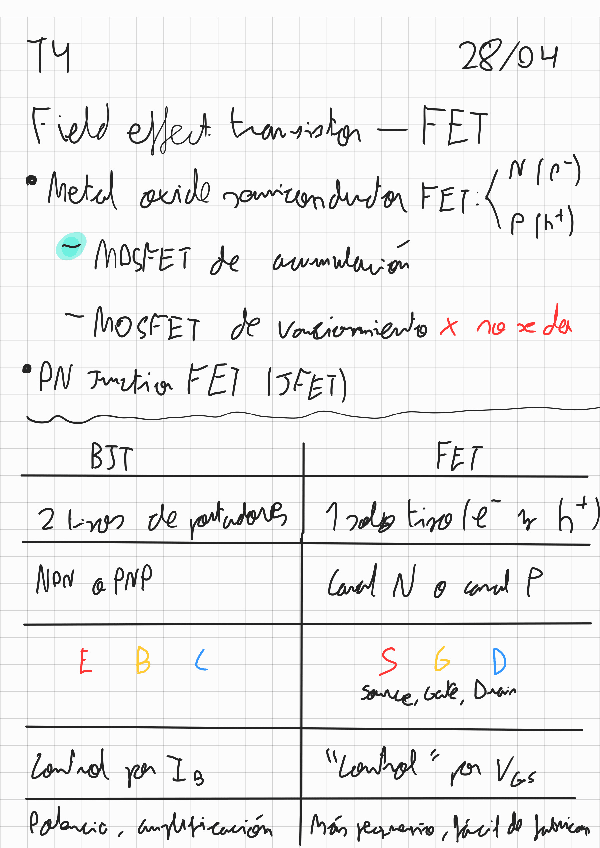 T4 28/04
Field effect transistor — FET
• Metal oxide semiconductor FET: N (e⁻)
P (h⁺)
- MOSFET de acumulación
- MOSFET de vaciamiento x no se da
• PN Junction FET (JFET)
BJT FET
2 tipos de portadores 1 solo tipo (e⁻ y h⁺)
NPN o PNP Canal N o canal P
E B C S G D
Source, Gate, Drain
Control por I_B "Control" por V_GS
Potencia, amplificación Más pequeño, fácil de fabricar